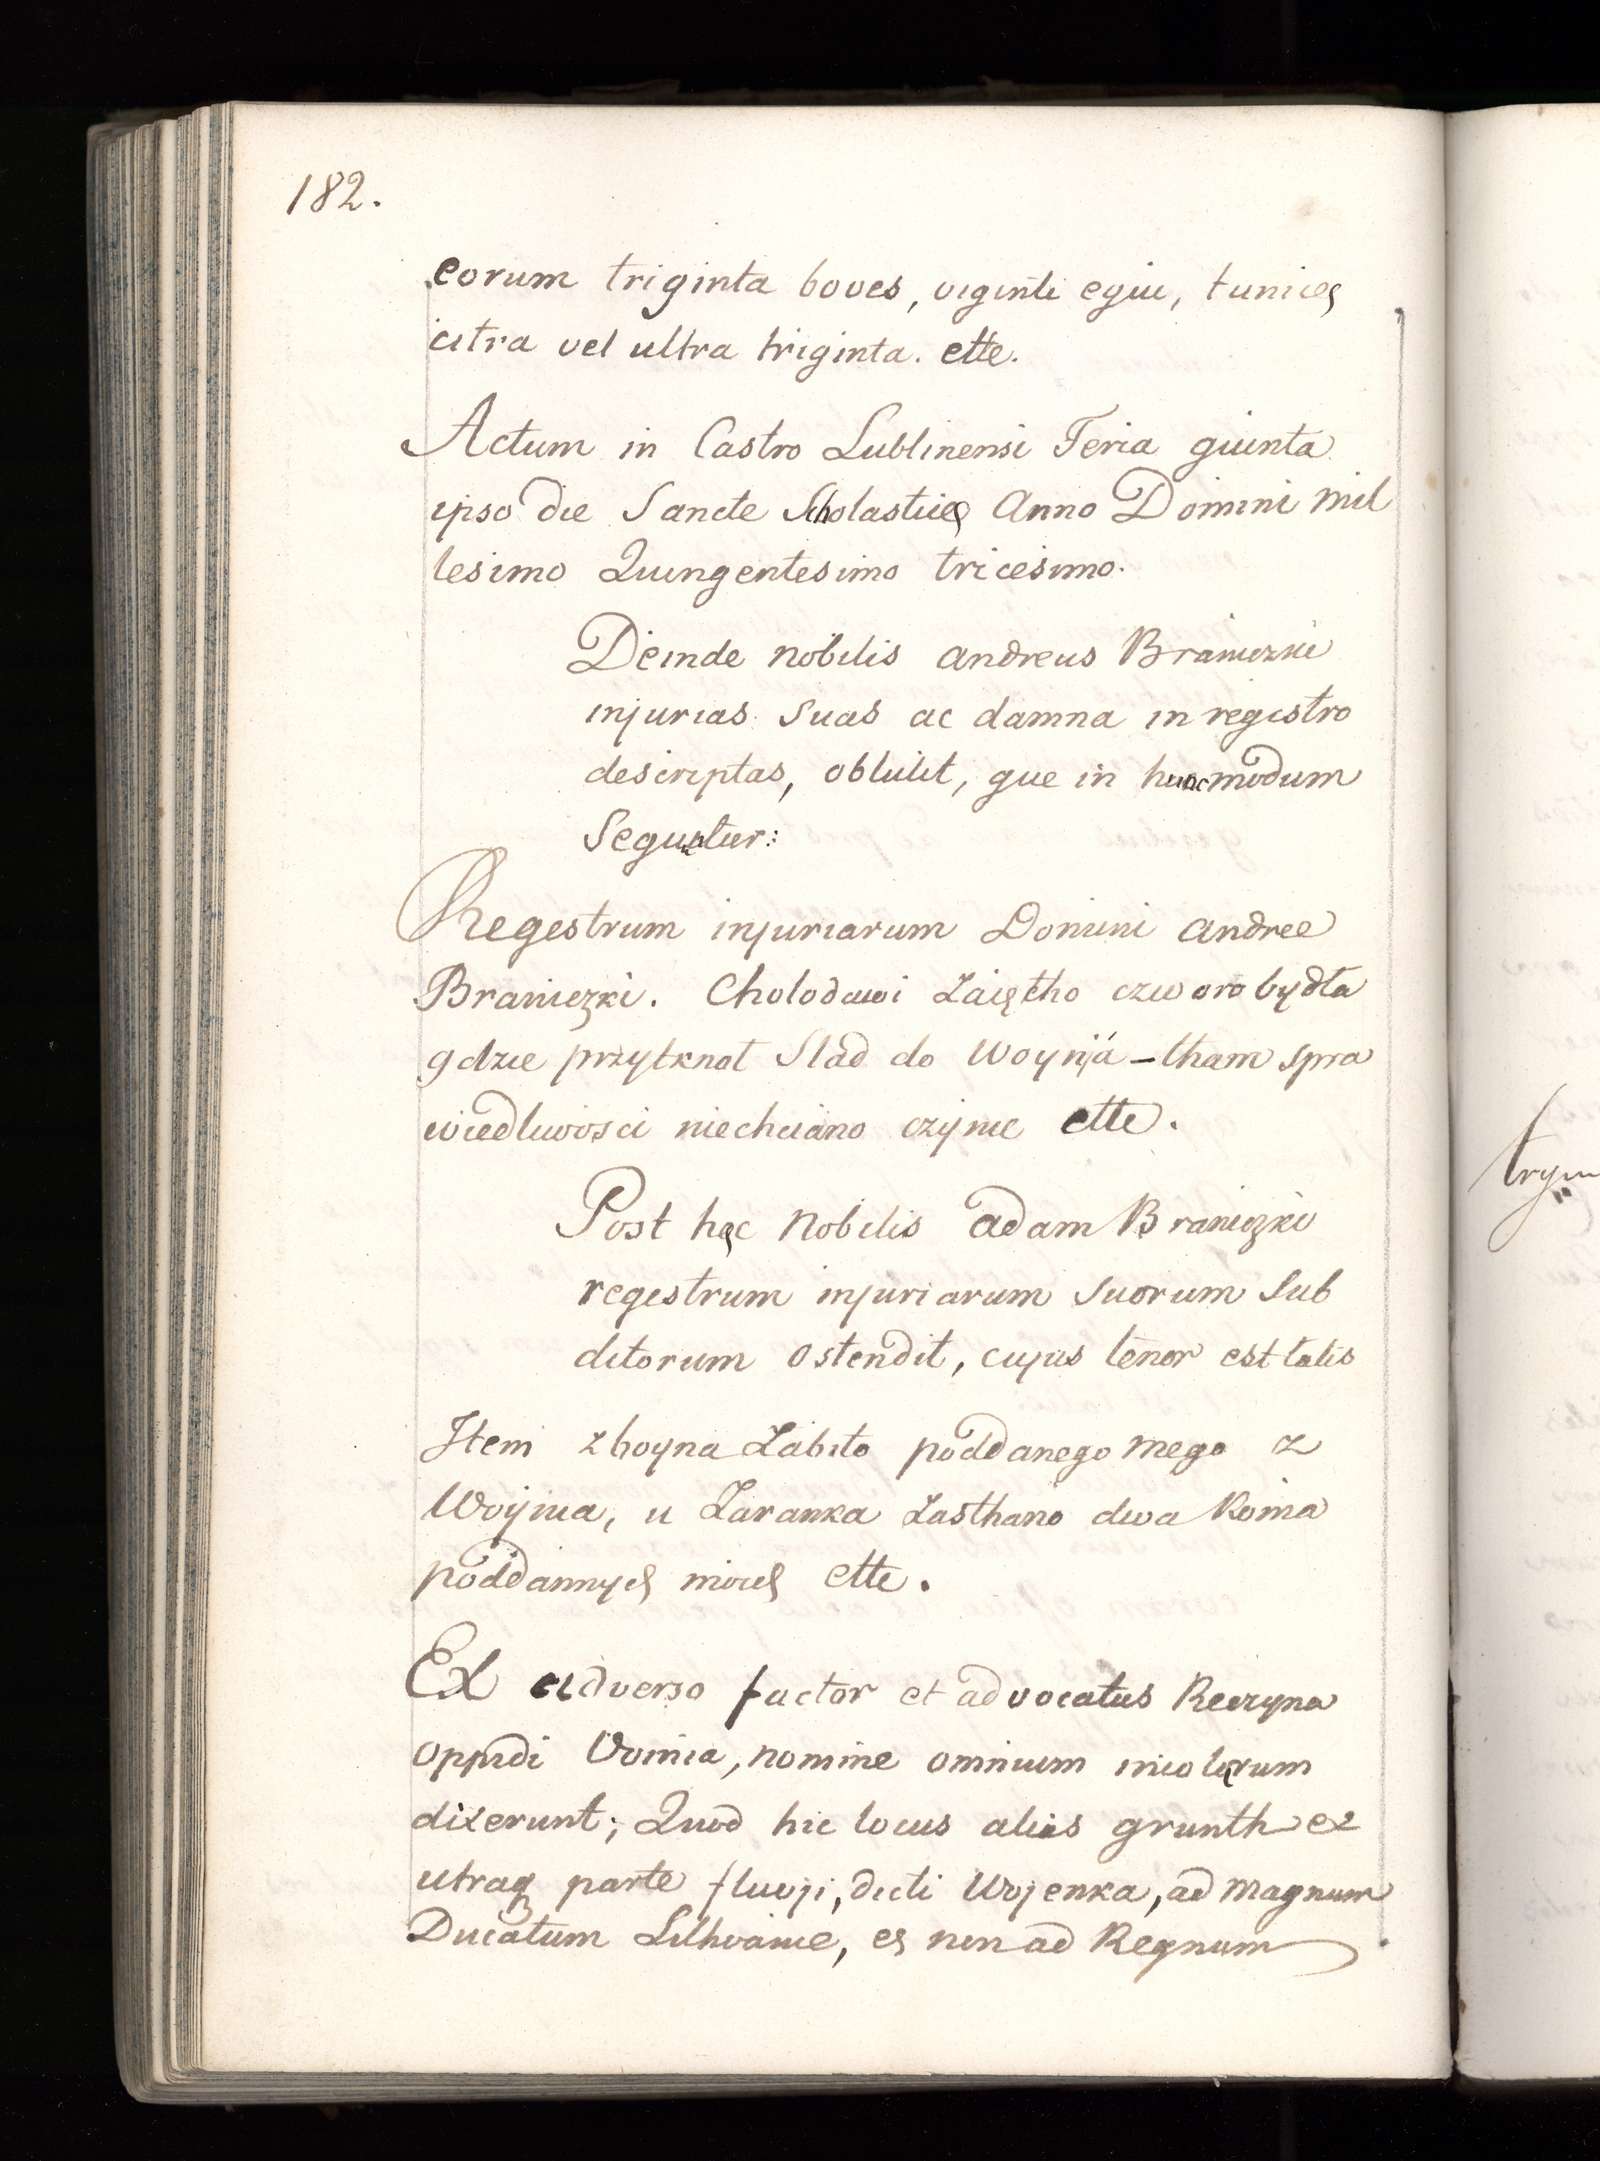 182.
eorum triginta boves, viginti equi, tunicę
citra vel ultra triginta. ette.
Actum in Castro Lublinensi Feria quinta
ipso die Sancte Scholasticę Anno Domini mil
lesimo Quingentesimo tricesimo.
Deinde nobilis andreas Braniczki
injurias suas ac damna in registro
descriptas, obtulit, que in huncmodum
Sequntur:
Regestrum injuriarum Domini andree
Braniczki. Cholodawi Zaiętho czworobydła
gdzie przytknot Slad do Woynjá – tham spra
wiedliwosci niechciano czynic ette.
Post hęc nobilis adam Braniczki
regestrum injuriarum Suorum Sub
ditorum ostendit, cujus tenor est talis
Item zboyna Zabito poddanego mego z
Woynia, u Zaranka Zasthano dwa Konia
poddannych moich ette.
Ex adverso factor et advocatus Reczyna
oppidi Voinia, nomine omnium incolęrum
dixerunt; Quod hic locus alias grunth ex
utraq parte fluvji, dicti Wojenka, ad magnum
Ducatum Lithvanie, et non ad Regnum
trym